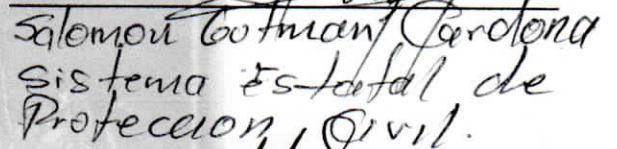 Salomon Gutman Cardona
Sistema Estatal de
Proteccion, Civil.